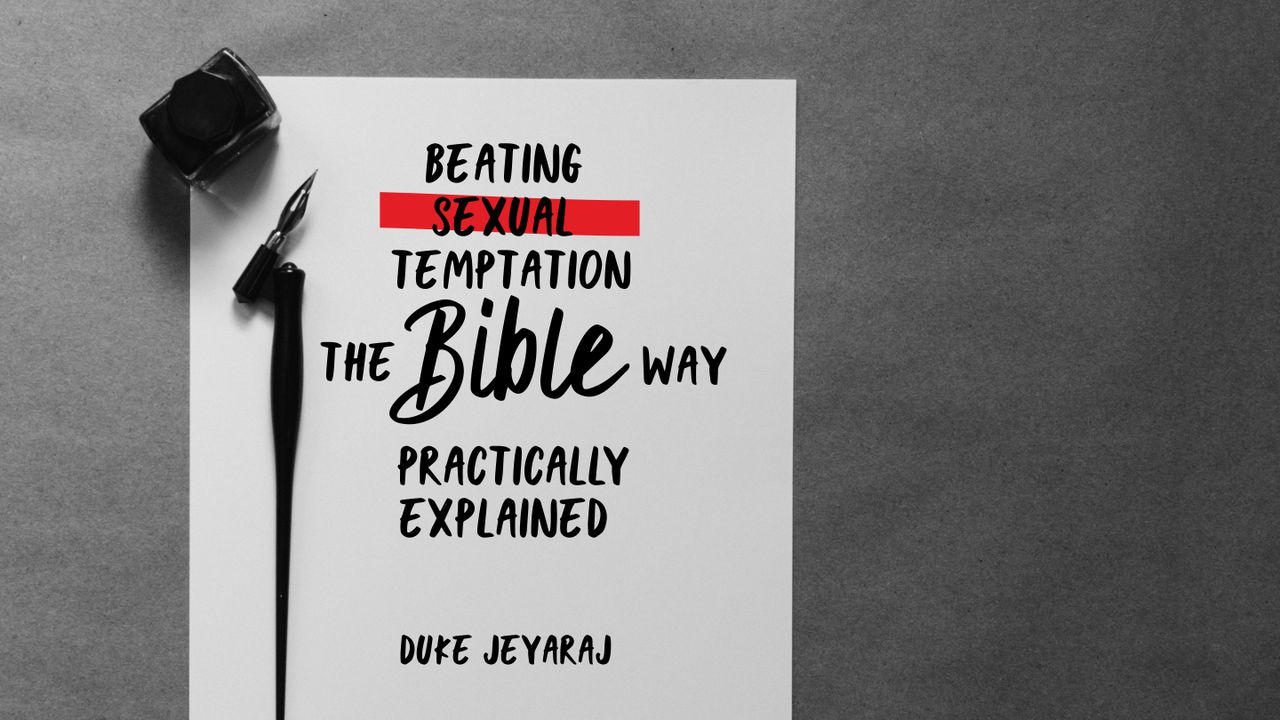 BEATING
SEXUAL
TEMPTATION
THE Bible WAY
PRACTICALLY
EXPLAINED
DUKE JEYARAJ